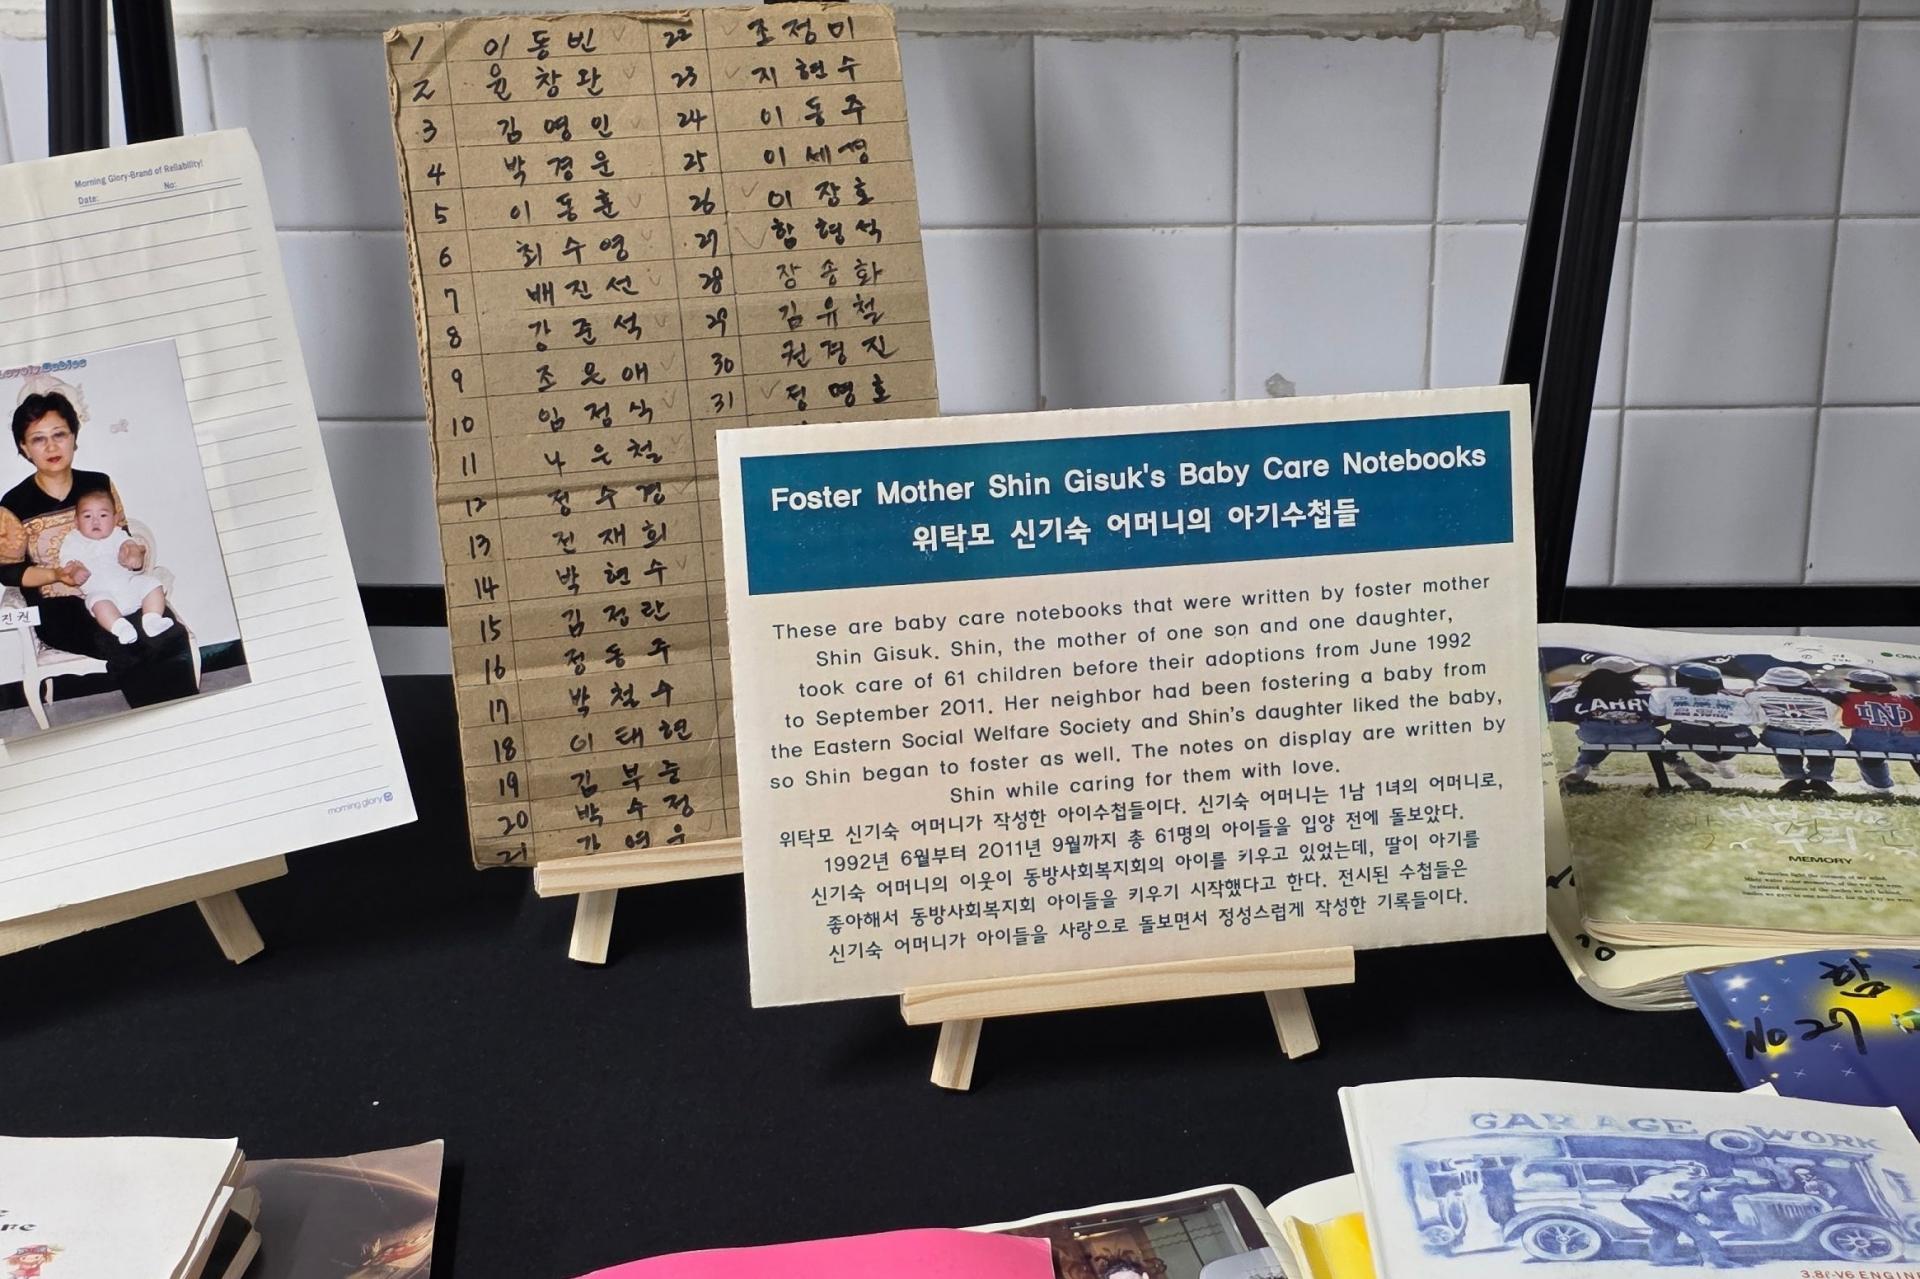 Morning Glory-Brand of Reliability!
Date: No:
Lovely Babies
진권
morning glory
1 이동빈 22 조정미
2 윤창완 23 지현수
3 김영인 24 이동주
4 박경운 25 이세영
5 이동훈 26 이장호
6 최수영 27 함형석
7 배진선 28 장송화
8 강준석 29 김유철
9 조은애 30 권경진
10 임정식 31 정명호
11 나은철
12 정수경
13 전재희
14 박현수
15 김정란
16 정동주
17 박철수
18 이태현
19 김부중
20 박수정
21
Foster Mother Shin Gisuk's Baby Care Notebooks
위탁모 신기숙 어머니의 아기수첩들
These are baby care notebooks that were written by foster mother
Shin Gisuk. Shin, the mother of one son and one daughter,
took care of 61 children before their adoptions from June 1992
to September 2011. Her neighbor had been fostering a baby from
the Eastern Social Welfare Society and Shin's daughter liked the baby,
so Shin began to foster as well. The notes on display are written by
Shin while caring for them with love.
위탁모 신기숙 어머니가 작성한 아이수첩들이다. 신기숙 어머니는 1남 1녀의 어머니로,
1992년 6월부터 2011년 9월까지 총 61명의 아이들을 입양 전에 돌보았다.
신기숙 어머니의 이웃이 동방사회복지회의 아이를 키우고 있었는데, 딸이 아기를
좋아해서 동방사회복지회 아이들을 키우기 시작했다고 한다. 전시된 수첩들은
신기숙 어머니가 아이들을 사랑으로 돌보면서 정성스럽게 작성한 기록들이다.
LARRY
MEMORY
GARAGE WORK
3.8ℓ-V6 ENGIN